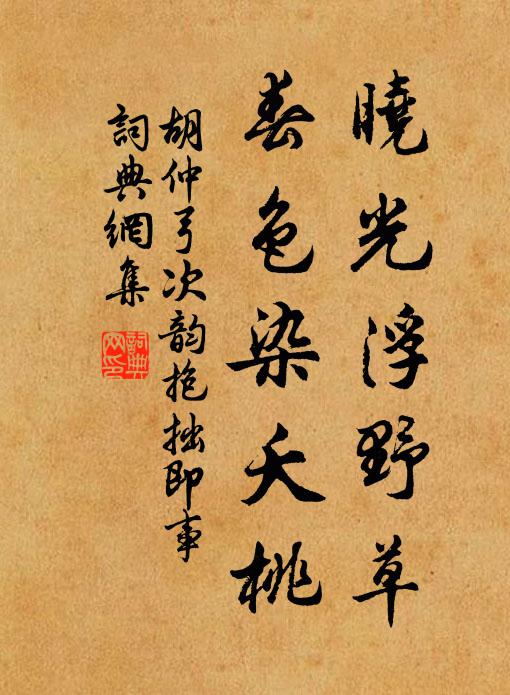 曉光浮野草
春色染夭桃
胡仲弓次韵抱拙即事
詞典網集
詞典網印